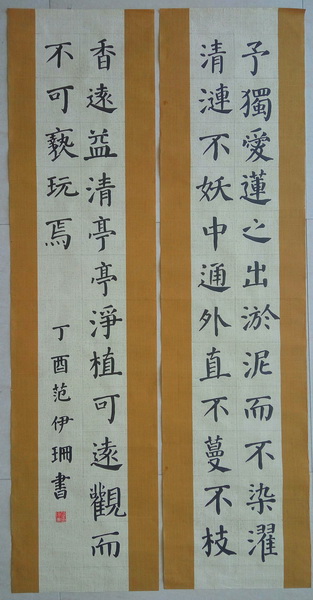 予獨愛蓮之出淤泥而不染濯
清漣不妖中通外直不蔓不枝
香遠益清亭亭淨植可遠觀而
不可褻玩焉
丁酉范伊珊書